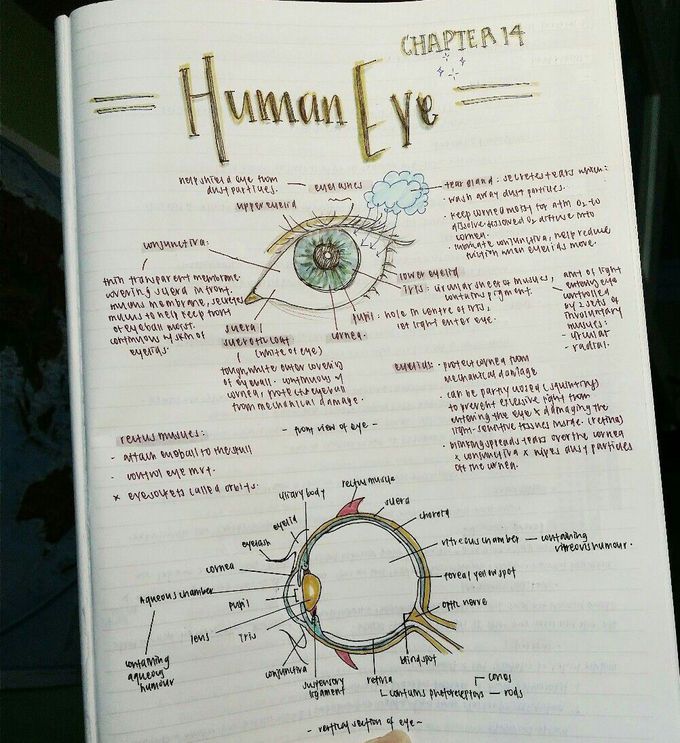 CHAPTER 14
Human Eye
help shield eye from
dust particles.
eyelashes
upper eyelid
tear gland: secretes tears which:
· wash away dust particles.
· keep cornea moist for atm O2 to
dissolve. dissolved O2 diffuse into
cornea.
· lubricate conjunctiva, help reduce
friction when eyelids move.
conjunctiva:
thin transparent membrane
covering sclera in front.
mucus membrane, secretes
mucus to help keep front
of eyeball moist.
continuous w/ skin of
eyelids.
lower eyelid
iris: circular sheet of muscles,
contains pigment.
pupil: hole in centre of iris,
let light enter eye.
amt of light
entering eye
controlled
by 2 sets of
involuntary
muscles:
- circular
- radial.
cornea.
sclera/
sclerotic coat
(white of eye)
tough, white outer covering
of eyeball. continuous w/
cornea, protects eyeball
from mechanical damage.
- front view of eye -
eyelids: · protect cornea from
mechanical damage
· can be partly closed (squinting)
to prevent excessive light from
entering the eye & damaging the
light-sensitive tissues inside. (retina)
· blinking spreads tears over the cornea
& conjunctiva & wipes dust particles
off the cornea.
rectus muscles:
- attach eyeball to the skull
- control eye mvt.
* eye sockets called orbits.
rectus muscle
ciliary body
sclera
eyelid
choroid
eyelash
vitreous chamber — containing
vitreous humour.
cornea
aqueous chamber
foveal yellow spot
pupil
optic nerve
lens
iris
blind spot
containing
aqueous
humour
conjunctiva
suspensory
ligament
retina
contains photoreceptors
cones
rods
- vertical section of eye -